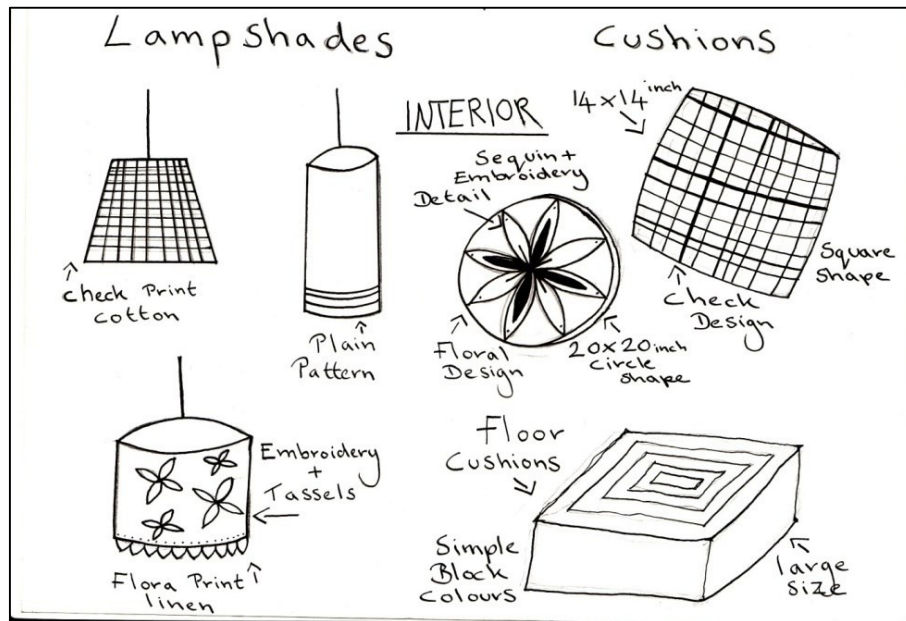 Lampshades
Cushions
INTERIOR
14x14 inch
Sequin +
Embroidery
Detail
Square
Shape
Check Print
Cotton
Plain
Pattern
Floral
Design
20x20 inch
circle
shape
Check
Design
Embroidery
+
Tassels
Floor
Cushions
Flora Print
linen
Simple
Block
Colours
large
size